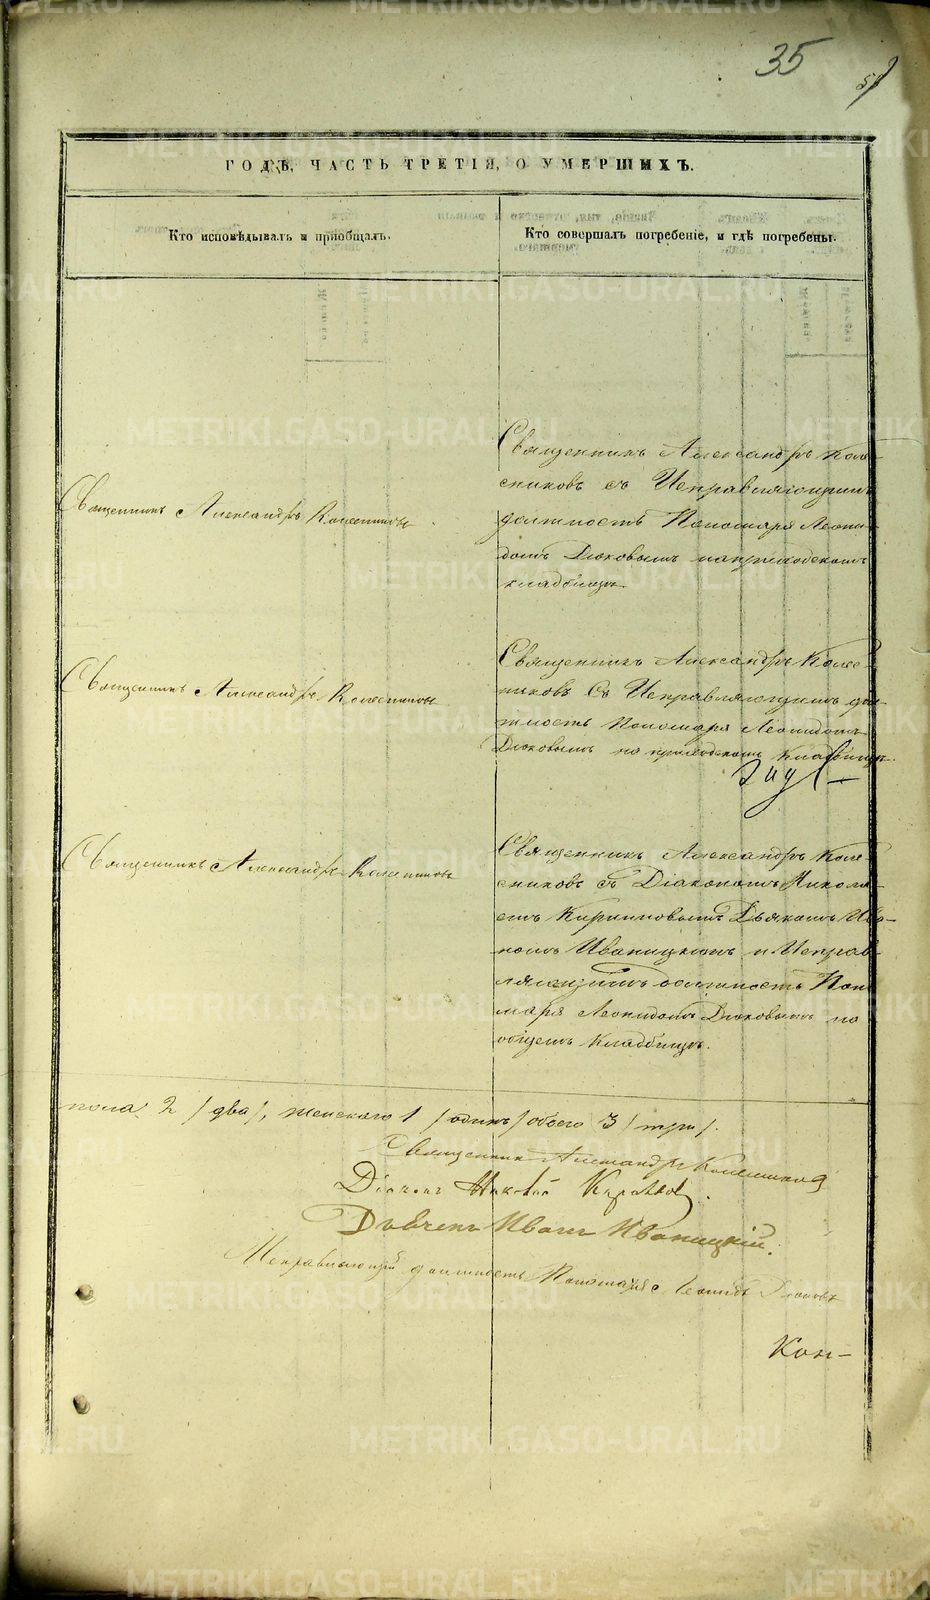 35
ГОДЪ, ЧАСТЬ ТРЕТІЯ, О УМЕРШИХЪ.
Кто исповѣдывалъ и приобщалъ.
Кто совершалъ погребеніе, и гдѣ погребены.
Священникъ Александръ Колесниковъ
Священникъ Александръ Коле-
сниковъ съ Исправляющимъ
должность Пономаря Леони-
домъ Дюковымъ на приходскомъ
кладбищѣ.
Священникъ Александръ Колесниковъ
Священникъ Александръ Колес-
никовъ съ Исправляющимъ дол-
жность Пономаря Леонидомъ
Дюковымъ на приходскомъ Кладбищѣ.
Священникъ Александръ Колесниковъ
Священникъ Александръ Коле-
сниковъ съ Діакономъ Никола-
емъ Дьякомъ Ива-
номъ Иваницкимъ и Исправ-
ляющимъ должность Поно
маря Леонидомъ Дюковымъ на
общемъ Кладбищѣ.
пола 2 /два/, женскаго 1 /одинъ/ обоего 3 /три/.
Священникъ Александръ Колесниковъ
Діаконъ
Дьячекъ Иванъ Иваницкій.
Исправляющій должность Пономаря Леонидъ Дюковъ
Кон-
METRIKI.GASO-URAL.RU